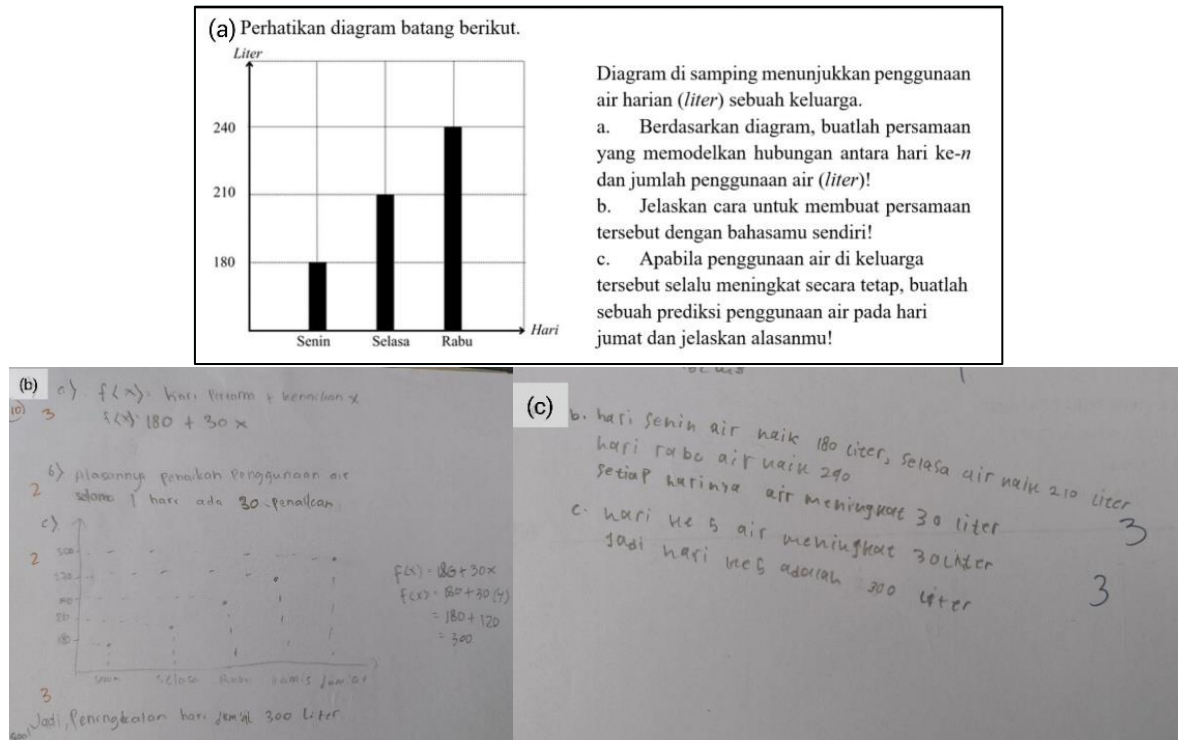 (a) Perhatikan diagram batang berikut.
Liter
240
210
180
Senin Selasa Rabu
Hari
Diagram di samping menunjukkan penggunaan
air harian (liter) sebuah keluarga.
a. Berdasarkan diagram, buatlah persamaan
yang memodelkan hubungan antara hari ke-n
dan jumlah penggunaan air (liter)!
b. Jelaskan cara untuk membuat persamaan
tersebut dengan bahasamu sendiri!
c. Apabila penggunaan air di keluarga
tersebut selalu meningkat secara tetap, buatlah
sebuah prediksi penggunaan air pada hari
jumat dan jelaskan alasanmu!
(b)
a). f(x) = hari Pertama + kenaikan x
3
f(x) = 180 + 30x
b) Alasannya penaikan Penggunaan air
2
selama 1 hari ada 30 penaikan
c)
2
300
180
Senin Selasa Rabu kamis Jum'at
f(x) = 180 + 30x
f(x) = 180 + 30(4)
= 180 + 120
= 300
3
Jadi, Peningkatan hari jum'at 300 Liter
(c)
b. hari senin air naik 180 liter, selasa air naik 210 liter
hari rabu air naik 240
setiap harinya air meningkat 30 liter
3
c. hari ke 5 air meningkat 30 liter
Jadi hari ke 5 adalah 300 liter
3